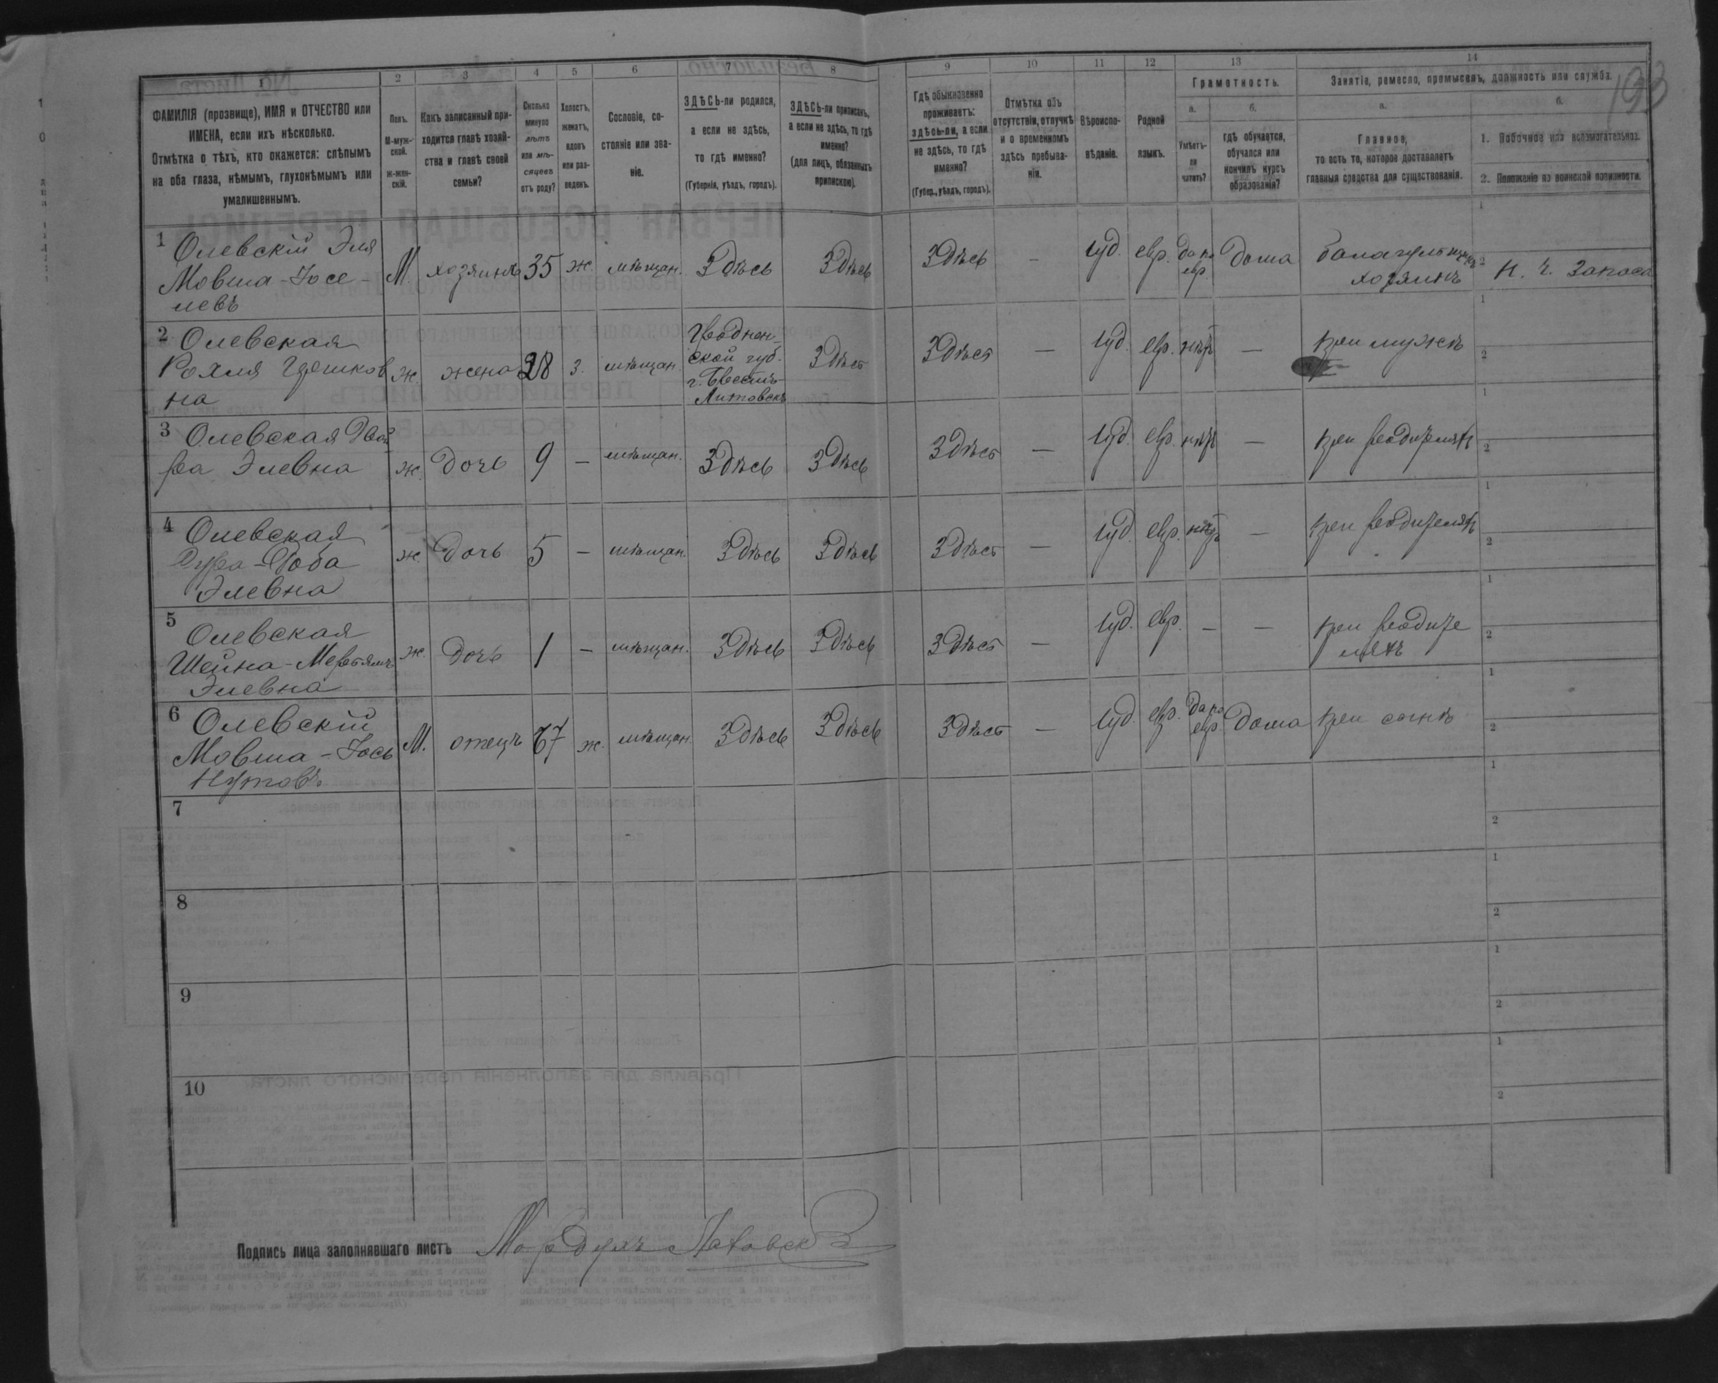 193
1 2 3 4 5 6 7 8 9 10 11 12 13 14
ФАМИЛІЯ (прозвище), ИМЯ и ОТЧЕСТВО или
ИМЕНА, если ихъ нѣсколько.
Отмѣтка о тѣхъ, кто окажется: слѣпымъ
на оба глаза, нѣмымъ, глухонѣмымъ или
умалишеннымъ.
Полъ.
М-муж-
ской.
Ж-жен-
скій.
Какъ записанный при-
ходится главѣ хозяй-
ства и главѣ своей
семьи?
Сколько
минуло
лѣтъ
или мѣ-
сяцевъ
отъ роду?
Холостъ,
женатъ,
вдовъ
или раз-
веденъ.
Сословіе, со-
стояніе или зва-
ніе.
ЗДѢСЬ-ли родился,
а если не здѣсь,
то гдѣ именно?
(Губернія, уѣздъ, городъ).
ЗДѢСЬ-ли приписанъ,
а если не здѣсь, то гдѣ
именно?
(для лицъ, обязанныхъ
припискою).
Гдѣ обыкновенно
проживаетъ:
здѣсь-ли, а если
не здѣсь, то гдѣ
именно?
(Губер., уѣздъ, городъ).
Отмѣтка объ
отсутствіи, отлучкѣ
и о временномъ
здѣсь пребыва-
ніи.
Вѣроиспо-
вѣданіе.
Родной
языкъ.
Грамотность.
а.
Умѣетъ-
ли
читать?
б.
гдѣ обучается,
обучался или
кончилъ курсъ
образованія?
Занятіе, ремесло, промыселъ, должность или служба.
а.
Главное,
то есть то, которое доставляетъ
главныя средства для существованія.
б.
1. Побочное или вспомогательное.
2. Положеніе по воинской повинности.
1 Олевскій Эля
Мовша-Іосе-
левъ
М. хозяинъ 35 ж. мѣщан. Здѣсь Здѣсь Здѣсь — Іуд. евр. да по евр. Дома
хозяинъ
Н. ч. запаса
2 Олевская
Рохля
на
ж. жена 28 з. мѣщан.
Гроднен-
ской губ.
г. Брестъ-
Литовскъ
Здѣсь Здѣсь — Іуд. евр. нѣтъ — при мужѣ
3 Олевская
Элевна
ж. дочь 9 — мѣщан. Здѣсь Здѣсь Здѣсь — Іуд. евр. нѣтъ — при родителяхъ
4 Олевская
Элевна
ж. дочь 5 — мѣщан. Здѣсь Здѣсь Здѣсь — Іуд. евр. нѣтъ — при родителяхъ
5 Олевская
Шейна-
Элевна
ж. дочь 1 — мѣщан. Здѣсь Здѣсь Здѣсь — Іуд. евр. — — при родите
ляхъ
6 Олевскій
Мовша-Іось
М. отецъ 67 ж. мѣщан. Здѣсь Здѣсь Здѣсь — Іуд. евр. да по евр. Дома при сынѣ
7
8
9
10
Подпись лица заполнявшаго листъ